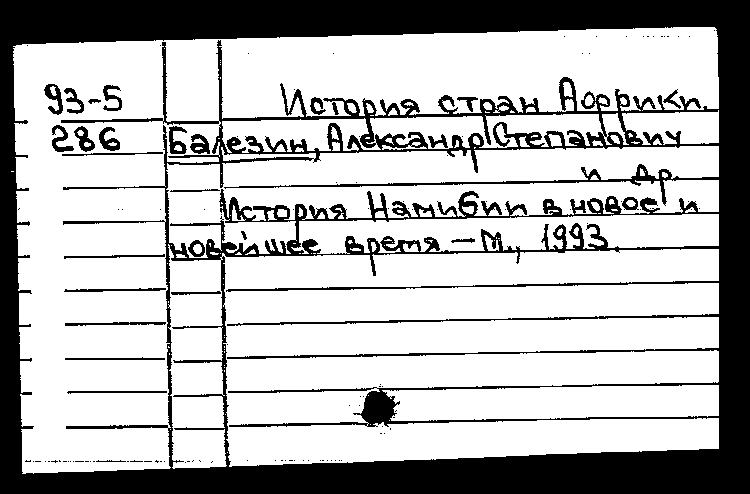 93-5 История стран Африки.
286 Балезин, Александр Степанович
и др.
История Намибии в новое и
новейшее время. – М., 1993.